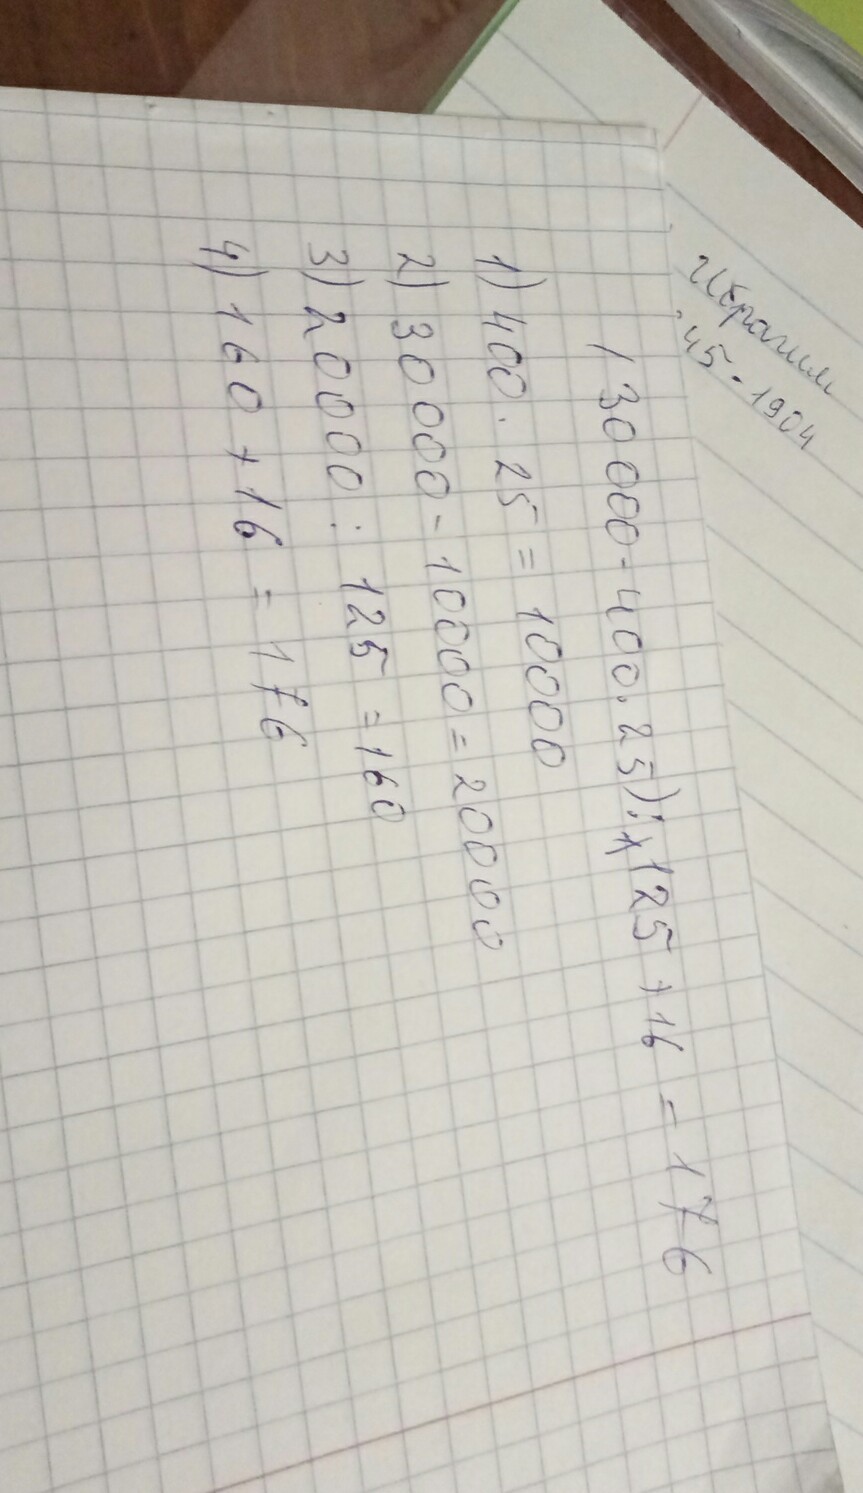 Ибрагим
45 · 1904
(30000-400.25):125+16=176
1) 400.25=10000
2) 30000-10000=20000
3) 20000:125=160
4) 160+16=176